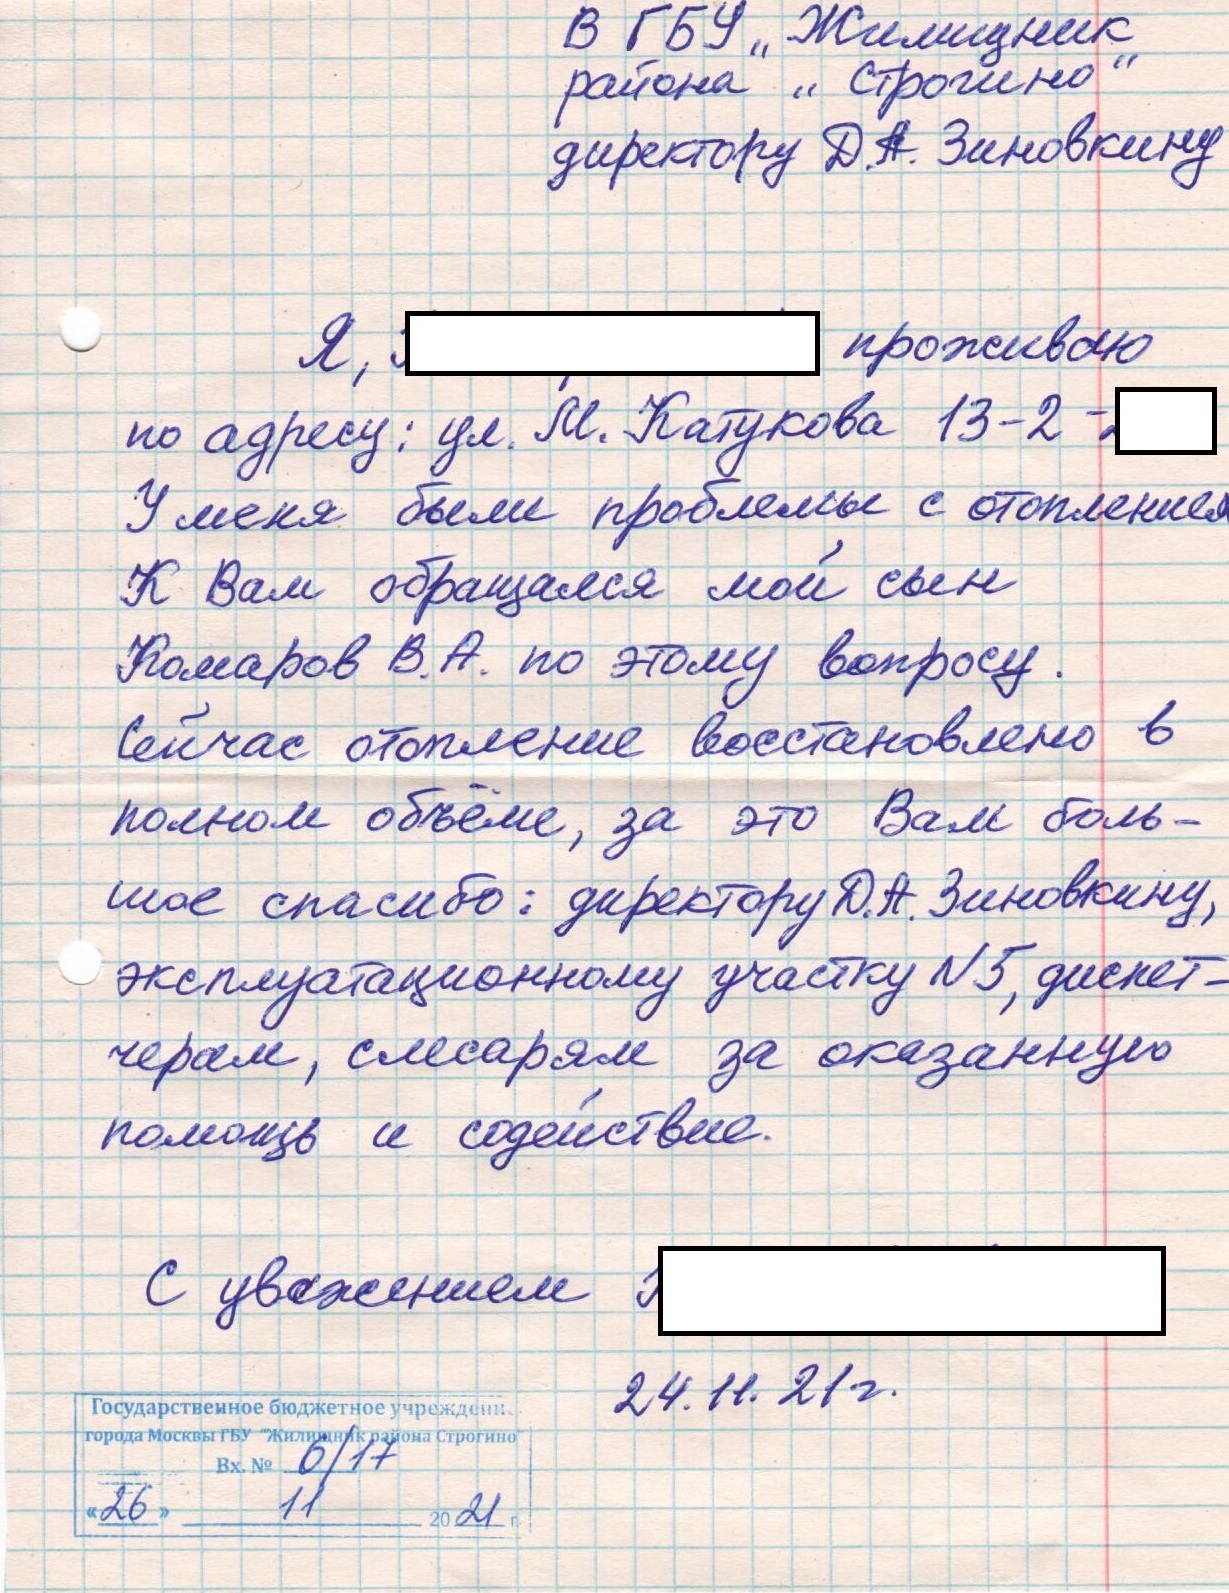 В ГБУ „Жилищник
района „Строгино“
директору Д.А. Зиновкину
Я, проживаю
по адресу: ул. М. Катукова 13-2-
У меня были проблемы с отоплением
К Вам обращался мой сын
Комаров В.А. по этому вопросу.
Сейчас отопление восстановлено в
полном объёме, за это Вам боль-
шое спасибо: директору Д.А. Зиновкину,
эксплуатационному участку N5, диспет-
черам, слесарям за оказанную
помощь и содействие.
С уважением
24.11.21г.
Государственное бюджетное учреждени
города Москвы ГБУ "Жилищник района Строгино"
Вх. № 6/17
«26» 11 2021 г.